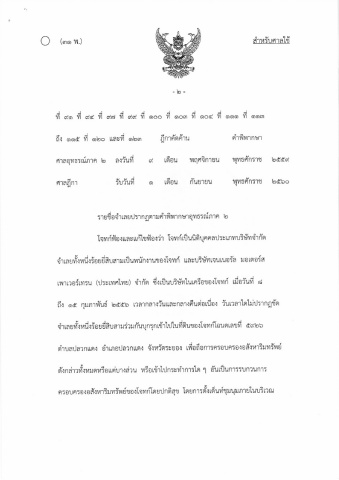 (๓๑ พ.)
สำหรับศาลใช้
- ๒ -
ที่ ๙๑ ที่ ๙๔ ที่ ๙๗ ที่ ๙๙ ที่ ๑๐๐ ที่ ๑๐๓ ที่ ๑๐๔ ที่ ๑๑๑ ที่ ๑๑๓
ถึง ๑๑๕ ที่ ๑๒๐ และที่ ๑๒๓ ฎีกาคัดค้าน คำพิพากษา
ศาลอุทธรณ์ภาค ๒ ลงวันที่ ๙ เดือน พฤศจิกายน พุทธศักราช ๒๕๕๙
ศาลฎีกา รับวันที่ ๑ เดือน กันยายน พุทธศักราช ๒๕๖๐
รายชื่อจำเลยปรากฏตามคำพิพากษาอุทธรณ์ภาค ๒
โจทก์ฟ้องและแก้ไขฟ้องว่า โจทก์เป็นนิติบุคคลประเภทบริษัทจำกัด
จำเลยทั้งหนึ่งร้อยยี่สิบสามเป็นพนักงานของโจทก์ และบริษัทเจนเนอรัล มอเตอร์ส
เพาเวอร์เทรน (ประเทศไทย) จำกัด ซึ่งเป็นบริษัทในเครือของโจทก์ เมื่อวันที่ ๘
ถึง ๑๕ กุมภาพันธ์ ๒๕๕๖ เวลากลางวันและกลางคืนต่อเนื่อง วันเวลาใดไม่ปรากฏชัด
จำเลยทั้งหนึ่งร้อยยี่สิบสามร่วมกันบุกรุกเข้าไปในที่ดินของโจทก์โฉนดเลขที่
ตำบลปลวกแดง อำเภอปลวกแดง จังหวัดระยอง เพื่อถือการครอบครองอสังหาริมทรัพย์
ดังกล่าวทั้งหมดหรือแต่บางส่วน หรือเข้าไปกระทำการใด ๆ อันเป็นการรบกวนการ
ครอบครองอสังหาริมทรัพย์ของโจทก์โดยปกติสุข โดยการตั้งเต็นท์ชุมนุมภายในบริเวณ